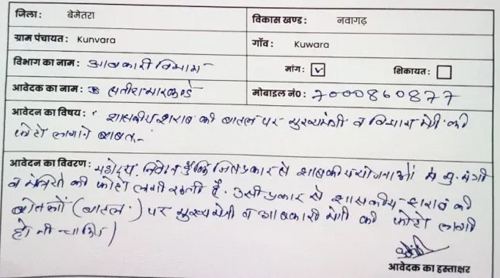 जिला: बेमेतरा विकास खण्ड: नवागढ़
ग्राम पंचायत: Kunvara गाँव: Kuwara
विभाग का नाम: आबकारी विभाग मांग: ☑ शिकायत: ☐
आवेदक का नाम: मोबाइल नं0: 7000860877
आवेदन का विषय: शासकीय शराब की बाटल पर मुख्यमंत्री व विभाग मंत्री की
फोटो लगाने बाबत-
आवेदन का विवरण: महोदय, निवेदन है कि जिसप्रकार से शासकीय योजनाओं में मु. मंत्री
व मंत्रियों की फोटो लगी रहती है. उसी प्रकार से शासकीय शराब की
बोतलों (बाटल) पर मुख्यमंत्री व आबकारी मंत्री की फोटो लगनी
होनी चाहिए।
आवेदक का हस्ताक्षर